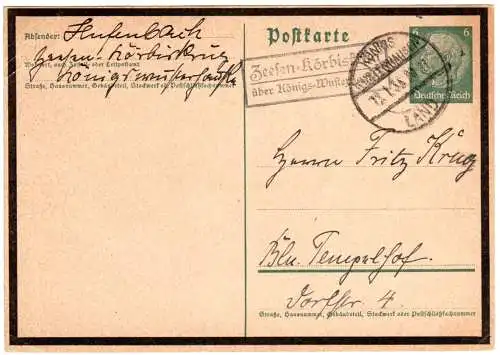 Absender: Hufenbach
Zeesen-Körbiskrug
Wohnort, auch Zustell- oder Leitpostamt
Königswusterhausen
Straße, Hausnummer, Gebäudeteil, Stockwerk od. Postschließfachnummer
Postkarte
6 6
Deutsches Reich
Zeesen-Körbis
über Königs-Wuster
KÖNIGS
WUSTERHAUSEN
LAND
Herrn Fritz Krug
Bln. Tempelhof
Dorfstr 4.
Straße, Hausnummer, Gebäudeteil, Stockwerk oder Postschließfachnummer